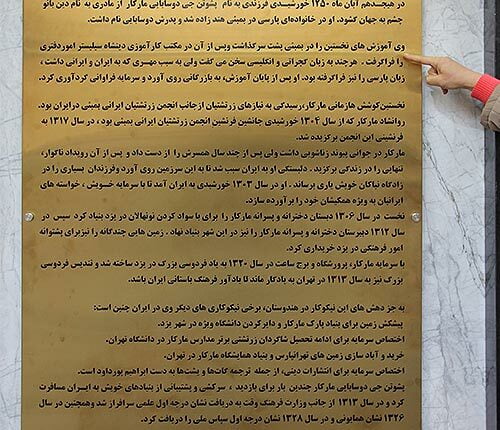 در هیجدهم آبان ماه ۱۲۵۰ خورشیدی فرزندی به نام پشوتن جی دوسابایی مارکار از مادری به نام دین بائو
چشم به جهان گشود. او در خانواده‌ای پارسی در بمبئی هند زاده شد و پدرش دوسابایی نام داشت.
وی آموزش های نخستین را در بمبئی پشت سرگذاشت وپس از آن در مکتب کارآموزی دینشاه سیلیستر اموردفتری
را فراگرفت . هرچند به زبان گجراتی و انگلیسی سخن می گفت ولی به سبب مهری که به ایران و ایرانی داشت ،
زبان پارسی را نیز فراگرفته بود. او پس از پایان آموزش، به بازرگانی روی آورد و سرمایه فراوانی گردآوری کرد.
نخستین‌کوشش هازمانی مارکار،رسیدگی به نیازهای زرتشتیان ازجانب انجمن زرتشتیان ایرانی بمبئی درایران بود.
روانشاد مارکار که از سال ۱۳۰۴ خورشیدی جانشین فرنشین انجمن زرتشتیان ایرانی بمبئی بود ، در سال ۱۳۱۷ به
فرنشینی این انجمن برگزیده شد.
مارکار در جوانی پیوند زناشویی داشت ولی پس از چند سال همسرش را از دست داد و پس از آن رویداد ناگوار،
تنهایی را در زندگی برگزید . دلبستگی او به ایران سبب شد تا به این سرزمین روی آورد وفرزندان بسیاری را در
زادگاه نیاکان خویش یاری برساند . او در سال ۱۳۰۳ خورشیدی به ایران آمد تا با سرمایه خسویش ، خواسته های
ایرانیان به ویژه همکیشان خود را برآورده سازد.
نخست در سال ۱۳۰۶ دبستان دخترانه و پسرانه مارکار را برای با سواد کردن نونهالان در یزد بنیاد کرد سپس در
سال ۱۳۱۲ دبیرستان دخترانه و پسرانه مارکار را نیز در این شهر بنیاد نهاد. زمین هایی چندگانه را نیزبرای پشتوانه
امور فرهنگی در یزد خریداری کرد.
با سرمایه مارکار، پرورشگاه و برج ساعت در سال ۱۳۲۰ به یاد فردوسی بزرگ در یزد ساخته شد و تندیس فردوسی
بزرگ نیز به سال ۱۳۱۳ در تهران به یادگار ماند تا یادآور فرهنگ باستانی ایران باشد.
به جز دهش های این نیکوکار در هندوستان، برخی نیکوکاری های دیگر وی در ایران چنین است:
پیشکش زمین برای بنیاد پارک مارکار و دایرکردن دانشگاه ویژه در شهر یزد.
اختصاص سرمایه برای ادامه تحصیل شاگردان زرتشتی برتر مدارس مارکار در دانشگاه تهران.
خرید و آباد سازی زمین های تهرانپارس و بنیاد همایشگاه مارکار در تهران.
اختصاص سرمایه برای انتشارات دینی، از جمله ترجمه گات‌ها و یشت‌ها به دست ابراهیم پورداود است.
پشوتن جی دوسابایی مارکار چندین بار برای بازدید ، سرکشی و پشتیبانی از بنیادهای خویش به ایسران مسافرت
کرد و در سال ۱۳۱۳ از جانب وزارت فرهنگ وقت به دریافت نشان درجه اول علمی سرافراز شد وهمچنین در سال
۱۳۲۶ نشان همایونی و در سال ۱۳۲۸ نشان درجه اول سپاس ملی را دریافت کرد.